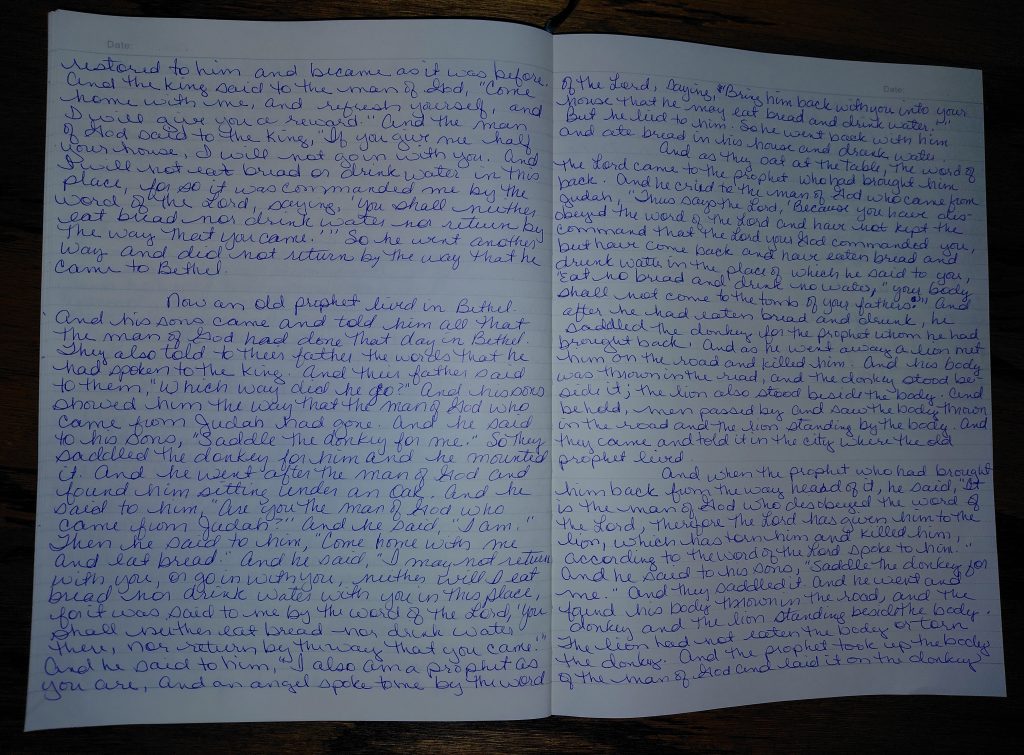 Date:
restored to him and became as it was before.
And the king said to the man of God, "Come
home with me, and refresh yourself, and
I will give you a reward." And the man
of God said to the king, "If you give me half
your house, I will not go in with you. And
I will not eat bread or drink water in this
place, for so it was commanded me by the
word of the Lord, saying, 'You shall neither
eat bread nor drink water nor return by
the way that you came.'" So he went another
way and did not return by the way that he
came to Bethel.
Now an old prophet lived in Bethel.
And his sons came and told him all that
the man of God had done that day in Bethel.
They also told to their father the words that he
had spoken to the king. And their father said
to them, "Which way did he go?" And his sons
showed him the way that the man of God who
came from Judah had gone. And he said
to his sons, "Saddle the donkey for me." So they
saddled the donkey for him and he mounted
it. And he went after the man of God and
found him sitting under an Oak. And he
said to him, "Are you the man of God who
came from Judah?" And he said, "I am."
Then he said to him, "Come home with me
and eat bread." And he said, "I may not return
with you, or go in with you, neither will I eat
bread nor drink water with you in this place,
for it was said to me by the word of the Lord, 'You
shall neither eat bread nor drink water
there, nor return by the way that you came.'"
And he said to him, "I also am a prophet as
you are, and an angel spoke to me by the word
Date:
of the Lord, saying, 'Bring him back with you into your
house that he may eat bread and drink water.'"
But he lied to him. So he went back with him
and ate bread in his house and drank water.
And as they sat at the table, the word of
the Lord came to the prophet who had brought him
back. And he cried to the man of God who came from
Judah, "Thus says the Lord, 'Because you have dis-
obeyed the word of the Lord and have not kept the
command that the Lord your God commanded you,
but have come back and have eaten bread and
drunk water in the place of which he said to you,
"Eat no bread and drink no water," your body
shall not come to the tomb of your fathers.'" And
after he had eaten bread and drunk, he
saddled the donkey for the prophet whom he had
brought back. And as he went away a lion met
him on the road and killed him. And his body
was thrown in the road, and the donkey stood be-
side it; the lion also stood beside the body. And
behold, men passed by and saw the body thrown
in the road and the lion standing by the body. And
they came and told it in the city where the old
prophet lived.
And when the prophet who had brought
him back from the way heard of it, he said, "It
is the man of God who disobeyed the word of
the Lord, therefore the Lord has given him to the
lion, which has torn him and killed him,
according to the word of the Lord spoke to him."
And he said to his sons, "Saddle the donkey for
me." And they saddled it. And he went and
found his body thrown in the road, and the
donkey and the lion standing beside the body.
The lion had not eaten the body or torn
the donkey. And the prophet took up the body
of the man of God and laid it on the donkey